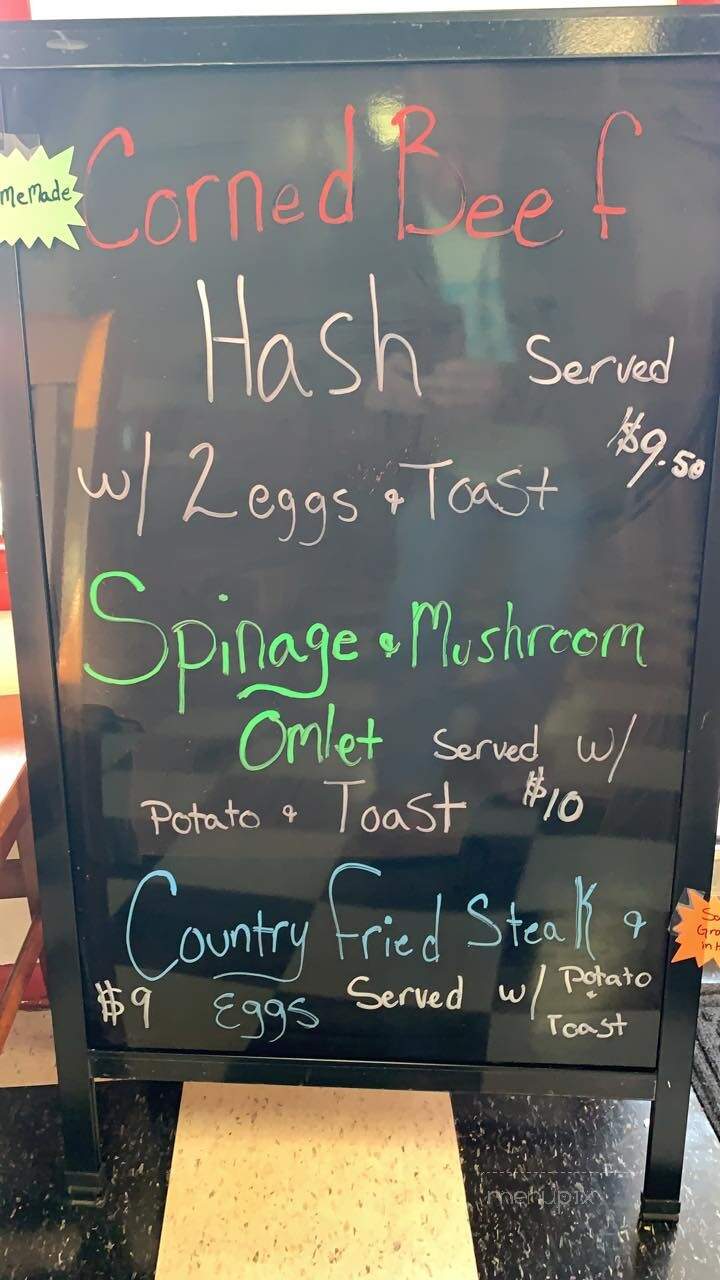 meMade
Corned Beef
Hash Served
$9.50
w/ 2 eggs & Toast
Spinage & Mushroom
Omlet Served w/
Potato & Toast $10
Country Fried Steak &
$9 Eggs Served w/ Potato
& Toast
menupix